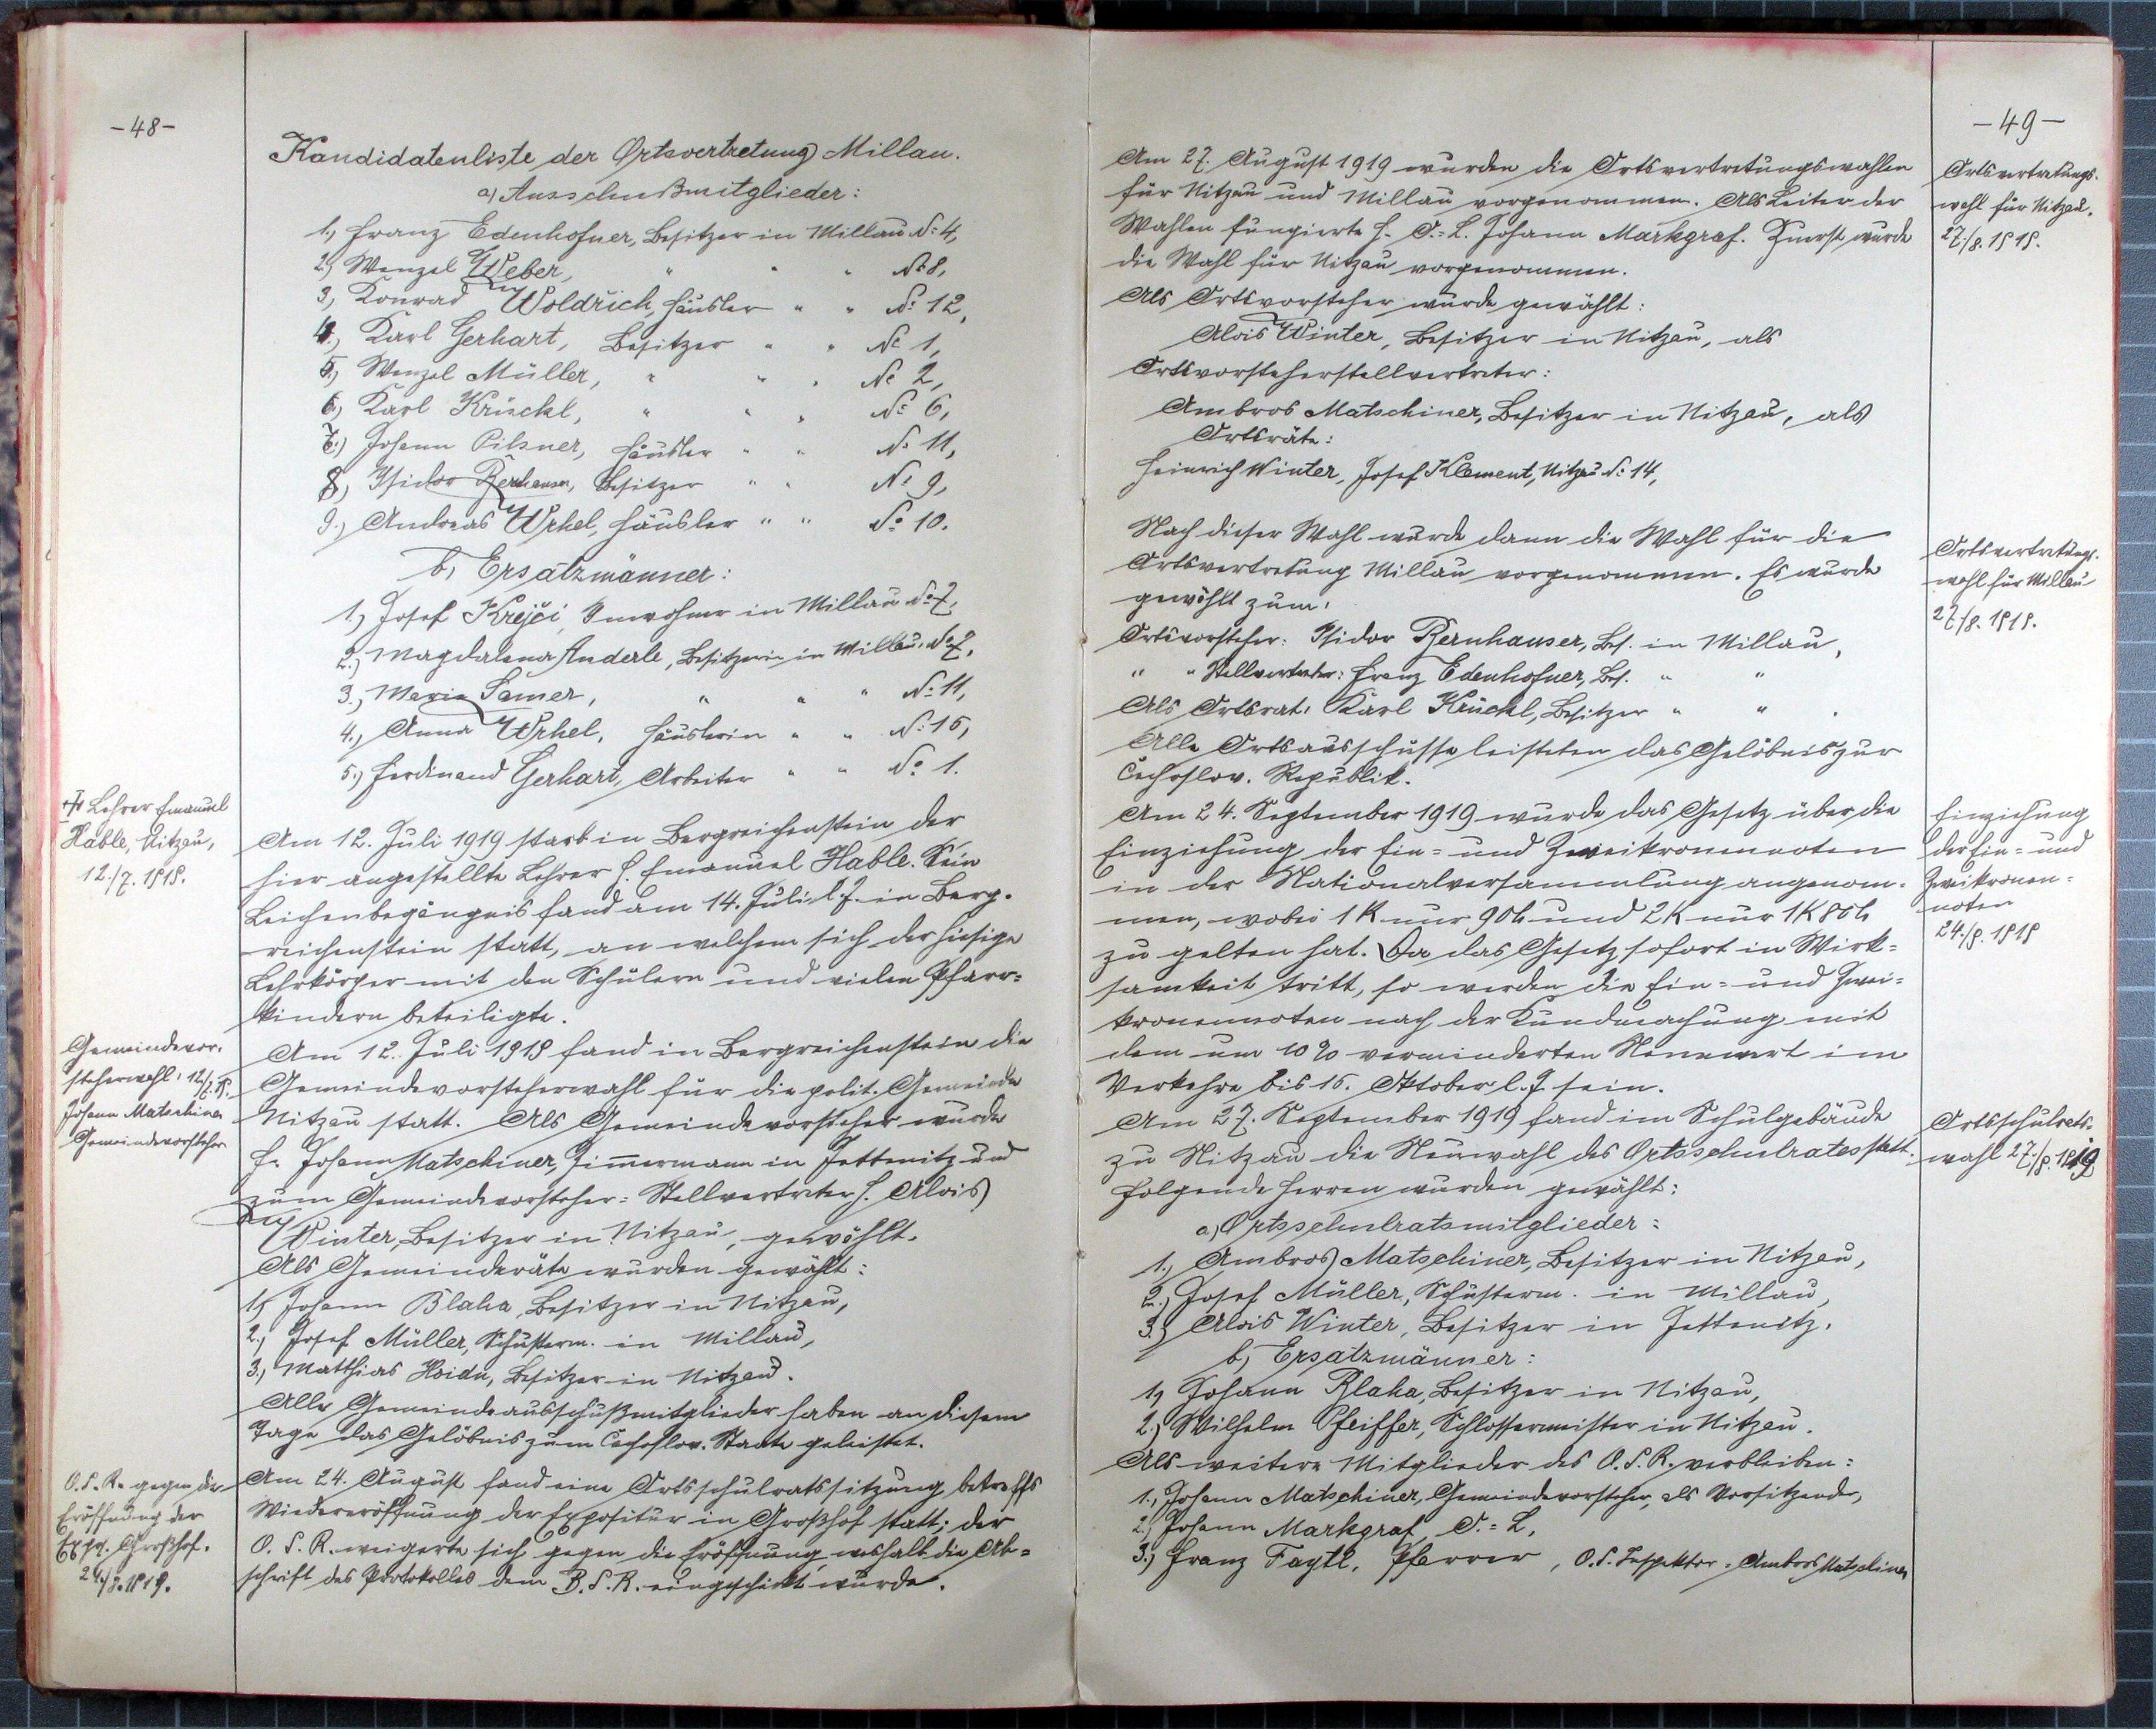 -48-
Kandidatenliste der Ortsvertretung Millau.
a) Ausschußmitglieder:
1., Franz Edenhofner, Besitzer in Millau № 4,
2.) Wenzel Weber, " " " № 8,
3.) Konrad Woldřich, Häusler " " № 12,
4.) Karl Gerhart, Besitzer " " № 1,
5.) Wenzel Müller, " " " № 2,
6.) Karl Krückl, " " " № 6,
7.) Johann Pilsner, Häusler " " № 11,
8.) Isidor Bernhauser, Besitzer " " № 9,
9.) Andreas Wrhel, Häusler " " № 10.
b, Ersatzmänner:
1.) Josef Krejči, Inwohner in Millau № 7,
2.) Magdalena Anderle, Besitzerin in Millau, № 7,
3.) Maria Samer, " " " № 11,
4.) Anna Wrhel, Häuslerin " " № 15,
5.) Ferdinand Gerhart, Arbeiter " " № 1.
† Lehrer Emanuel
Hable, Nitzau,
12./7. 1919.
Am 12. Juli 1919 starb in Bergreichenstein der
hier angestellte Lehrer H. Emanuel Hable. Sein
Leichenbegängnis fand am 14. Juli l. J. in Berg-
reichenstein statt, an welchem sich der hiesige
Lehrkörper mit den Schülern und vielen Pfarr=
kindern beteiligte.
Gemeindevor-
steherwahl: 12./7. 19.
Johann Matschiner
Gemeindevorsteher
Am 12. Juli 1919 fand in Bergreichenstein die
Gemeindevorsteherwahl für die polit. Gemeinde
Nitzau statt. Als Gemeindevorsteher wurde
H. Johann Matschiner, Zimmermann in Jettenitz und
zum Gemeindevorsteher=Stellvertreter H. Alois
Winter, Besitzer in Nitzau, gewählt.
Als Gemeinderäte wurden gewählt:
1.) Johann Blaha, Besitzer in Nitzau,
2.) Josef Müller, Schusterm. in Millau,
3.) Matthias Hoidn, Besitzer in Nitzau.
Alle Gemeindeausschußmitglieder haben an diesem
Tage das Gelöbnis zum Čechoslov. Staate geleistet.
O.S.R. gegen die
Eröffnung der
Exp. Großhof.
24./8. 1919.
Am 24. August fand eine Ortsschulratssitzung betreffs
Wiedereröffnung der Expositur in Großhof statt; der
O.S.R. weigerte sich gegen die Eröffnung, weshalb die Ab=
schrift des Protokolles dem B.S.R. eingeschickt wurde.
-49-
Am 27. August 1919 wurden die Ortsvertretungswahlen
für Nitzau und Millau vorgenommen. Als Leiter der
Wahlen fungierte H. O.=L. Johann Markgraf. Zuerst wurde
die Wahl für Nitzau vorgenommen.
Als Ortsvorsteher wurde gewählt:
Alois Winter, Besitzer in Nitzau, als
Ortsvorsteherstellvertreter:
Ambros Matschiner, Besitzer in Nitzau, als
Ortsräte:
Heinrich Winter, Josef Klement, Nitzau № 14,
Ortsvertretungs-
wahl für Nitzau.
27./8. 1919.
Nach dieser Wahl wurde dann die Wahl für die
Ortsvertretung Millau vorgenommen. Es wurde
gewählt zum:
Ortsvorsteher: Isidor Bernhauser, Bes. in Millau,
" " Stellvertreter: Franz Edenhofner, Bes. " "
Als Ortsrat: Karl Krückl, Besitzer " " .
Alle Ortsausschüsse leisteten das Gelöbnis zur
Čechoslov. Republik.
Ortsvertretungs-
wahl für Millau
27./8. 1919.
Am 24. September 1919 wurde das Gesetz über die
Einziehung der Ein= und Zweikronennoten
in der Nationalversammlung angenom-
men, wobei 1 K nur 90 h und 2 K nur 1 K 80 h
zu gelten hat. Da das Gesetz sofort in Wirk=
samkeit tritt, so werden die Ein= und Zwei=
kronennoten nach der Kundmachung mit
dem um 10% verminderten Nennwert im
Verkehre bis 15. Oktober l. J. sein.
Einziehung
der Ein= und
Zweikronen=
noten
24./9. 1919
Am 27. September 1919 fand im Schulgebäude
zu Nitzau die Neuwahl des Ortsschulrates statt.
Folgende Herren wurden gewählt:
Ortsschulrats-
wahl 27./9. 1919
a) Ortsschulratsmitglieder:
1.) Ambros Matschiner, Besitzer in Nitzau,
2.) Josef Müller, Schusterm. in Millau,
3.) Alois Winter, Besitzer in Jettenitz.
b, Ersatzmänner:
1.) Johann Blaha, Besitzer in Nitzau,
2.) Wilhelm Pfeiffer, Schlossermeister in Nitzau.
Als weitere Mitglieder des O.S.R. verbleiben:
1.) Johann Matschiner, Gemeindevorsteher, als Vorsitzender,
2.) Johann Markgraf, O.=L.
3.) Franz Faytl, Pfarrer, O.S. Inspektor = Ambros Matschiner